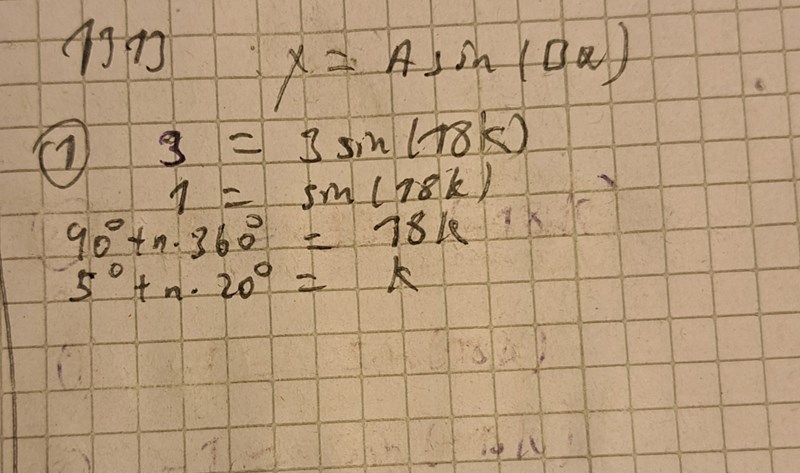 1919 y = A sin(Bx)
① 3 = 3 sin(18k)
1 = sin(18k)
90° + n · 360° = 18k
5° + n · 20° = k